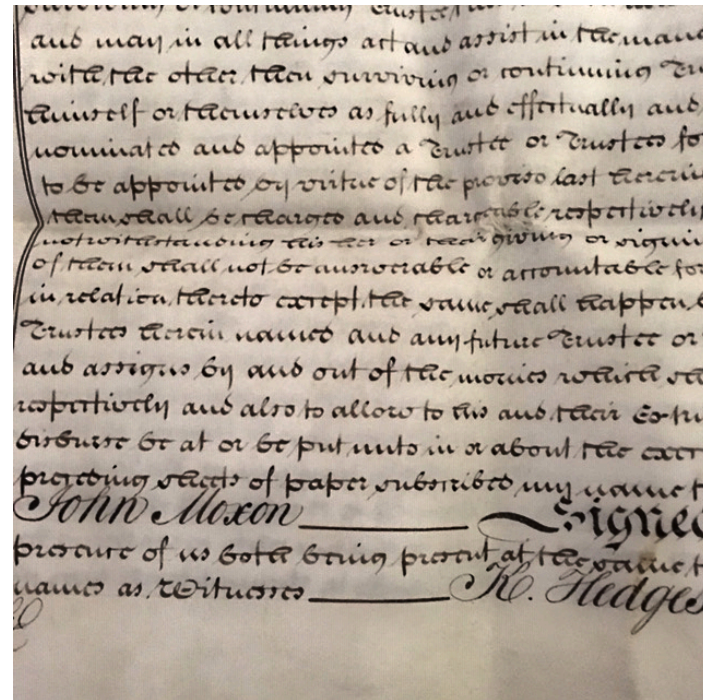 surviving or continuing Trustee
and may in all things act and assist in the
with the other then surviving or continuing
himself or themselves as fully and effectually and
nominated and appointed a Trustee or Trustees
to be appointed by virtue of the proviso last
them shall be charged and chargeable respectively
notwithstanding his her or their giving or
of them shall not be answerable or accountable for
in relation thereto except the same shall happen
Trustees herein named and any future Trustee or
and assigns by and out of the monies which
respectively and also to allow to his and their
disburse be at or be put unto in or about the
preceding sheets of paper subscribed my name
John Moxon Signed
presence of us both being present at the same
names as Witnesses K. Hedges